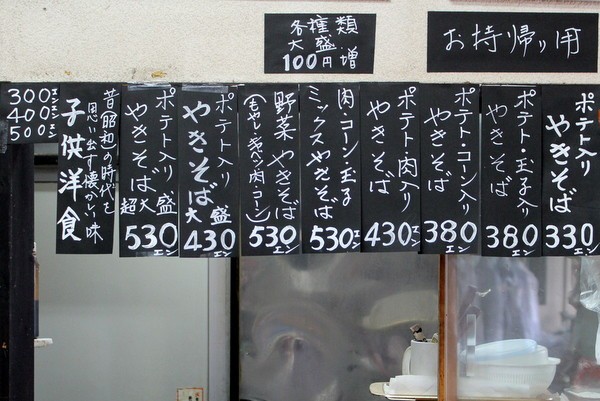 お持帰り用
各種類
大盛
100円増
ポテト入り
やきそば
330
エン
ポテト・玉子入り
やきそば
380
エン
ポテト・コーン入り
やきそば
380
エン
ポテト肉入り
やきそば
430
エン
肉・コーン・玉子
ミックスやきそば
530
エン
野菜やきそば
(もやし・キャベツ・肉・コーン)
530
エン
ポテト入り
やきそば
大盛
430
エン
ポテト入り
やきそば
超大盛
530
エン
昔(昭初)の時代を
思い出す懐かしい味
子供洋食
300エン
400エン
500エン